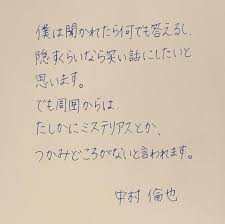 僕は聞かれたら何でも答えるし、
隠すくらいなら笑い話にしたいと
思います。
でも周囲からは、
たしかにミステリアスとか、
つかみどころがないと言われます。
中村 倫也